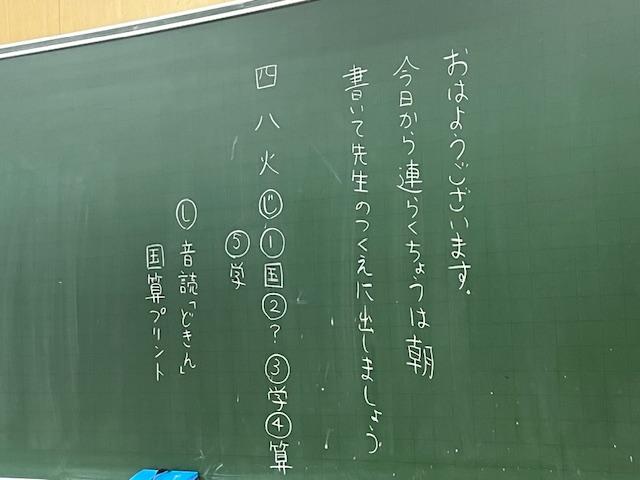 おはようございます。
今日から連らくちょうは朝
書いて先生のつくえに出しましょう
四 八 火 じ ①国②?③学④算
⑤学
し 音読「どきん」
国算プリント